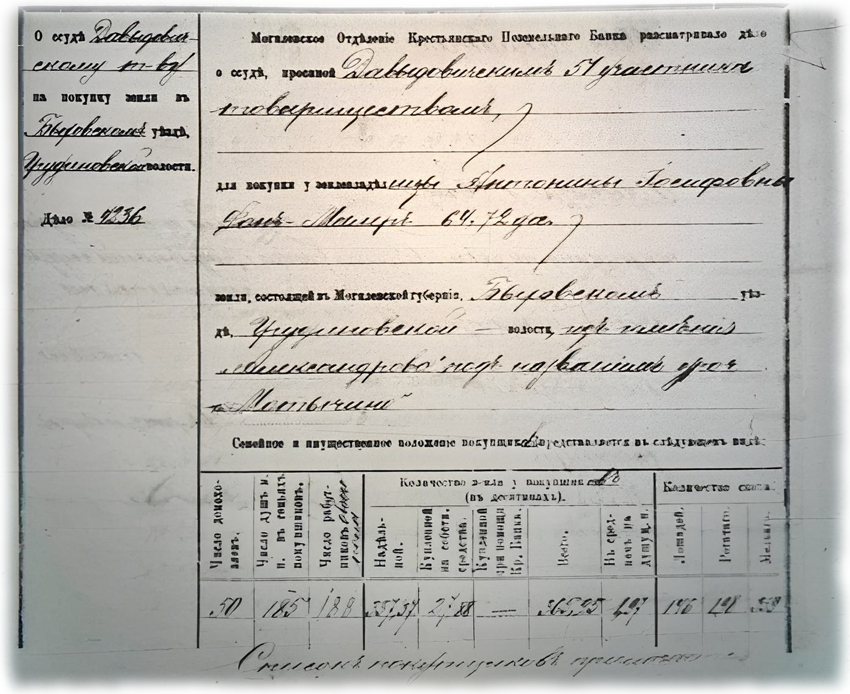 О ссудѣ Давыдович-
скому т-ву
на покупку земли въ
Быховскомъ уѣздѣ,
Чудиновской волости.
Дѣло № 4236
Могилевское Отдѣленіе Крестьянскаго Поземельнаго Банка разсматривало дѣло
о ссудѣ, просимой Давыдовичскимъ 51 участника
товариществомъ,
для покупки у землевладѣлицы Антонины Іосифовны
Фонъ-Мейеръ 64.72 дес.
земли, состоящей въ Могилевской губерніи, Быховскомъ уѣз-
дѣ, Чудиновской волости, изъ имѣнія
Александрово подъ названіемъ уроч
Мотычино
Семейное и имущественное положеніе покупщиковъ представляется въ слѣдующемъ видѣ:
Количество земли у покупщиковъ Количество скота.
(въ десятинахъ).
Число домохо-
зяевъ.
Число душъ м.
п. въ семьяхъ
покупщиковъ.
Число работ-
никовъ
Надѣль-
ной.
Купленной
на собств.
средства.
Купленной
при помощи
Кр. Банка.
Всего.
Въ сред-
немъ на
душу м. п.
Лошадей.
Рогатаго.
Мелкаго.
50 185 188 337,37 27,88 — 365,25 1,97 146 198
Списокъ покупщиковъ